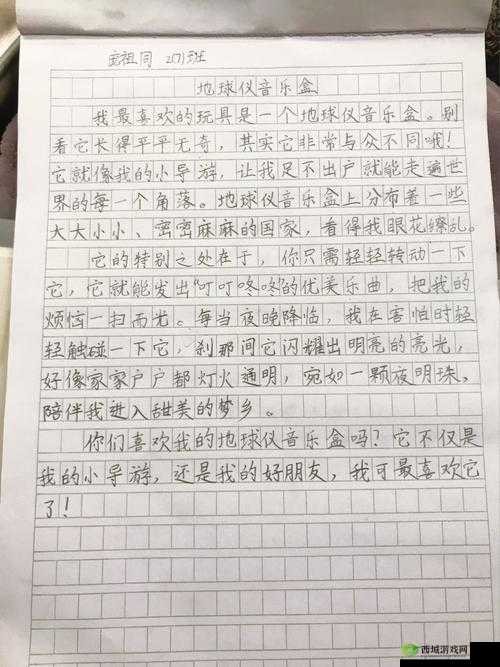 祖同 2(7)班
地球仪音乐盒
我最喜欢的玩具是一个地球仪音乐盒。别
看它长得平平无奇，其实它非常与众不同哦！
它就像我的小导游，让我足不出户就能走遍世
界的每一个角落。地球仪音乐盒上分布着一些
大大小小、密密麻麻的国家，看得我眼花缭乱。
它的特别之处在于，你只需轻轻转动一下
它，它就能发出“叮叮咚咚”的优美乐曲，把我的
烦恼一扫而光。每当夜晚降临，我在害怕时轻
轻触碰一下它，刹那间它闪耀出明亮的亮光，
好像家家户户都灯火通明，宛如一颗夜明珠，
陪伴我进入甜美的梦乡。
你们喜欢我的地球仪音乐盒吗？它不仅是
我的小导游，还是我的好朋友，我可最喜欢它
了！
西域游戏网